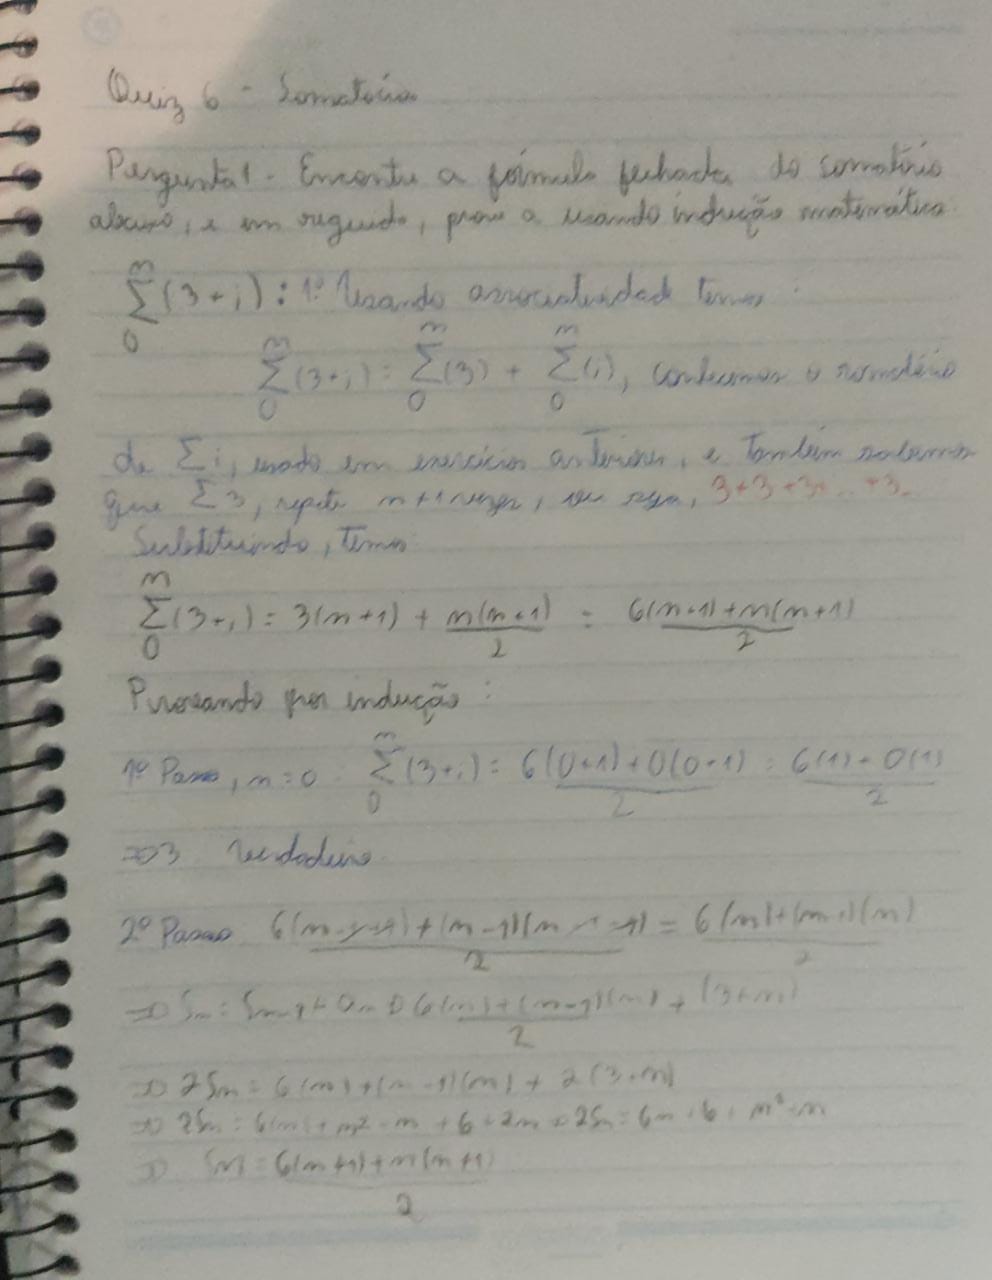 Quiz 6 - Somatório
Pergunta 1 - Encontre a fórmula fechada do somatório
abaixo, e em seguida, prove a usando indução matemática.
n
∑(3+i): 1º Usando associatividade temos
0
n n n
∑(3+i) = ∑(3) + ∑(i), conhecemos o somatório
0 0 0
de ∑i, usado em exercícios anteriores, e também sabemos
que ∑3, repete n+1 vezes, ou seja, 3+3+3+...+3.
Substituindo, temos
n
∑(3+i) = 3(n+1) + n(n+1)/2 = 6(n+1)+n(n+1)/2
0
Provando por indução:
1º Passo, n=0. n∑0 (3+i) = 6(0+1)+0(0+1)/2 = 6(1)+0(1)/2
=> 3 Verdadeiro.
2º Passo 6(n-1+1)+(n-1)(n-1+1)/2 = 6(n)+(n-1)(n)/2
=> Sn = Sn-1 + an => 6(n)+(n-1)(n)/2 + (3+n)
=> 2Sn = 6(n)+(n-1)(n) + 2(3+n)
=> 2Sn = 6(n)+n²-n+6+2n = 2Sn = 6n+6+n²+n
=> Sn = 6(n+1)+n(n+1)/2